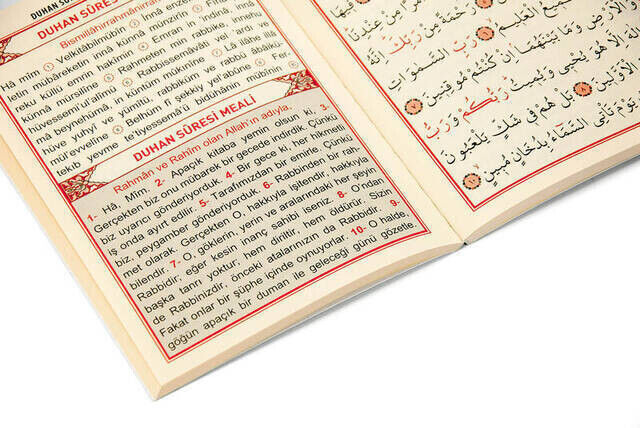 DUHAN SÛRE
DUHAN SÛRESİ
Bismillâhirrahmânirrah
Hâ mîm ① Velkitâbilmübîn ② İnnâ enze
letim mübâraketin innâ künnâ münzirîn ③ Fîhâ
reku küllü emrin hakîmin ④ Emran min 'indinâ, innâ
künnâ mürsilîne ⑤ Rahmeten min rabbike, inneh
hüvessemî'ul'alîmü ⑥ Rabbissemâvâti vel'ardi ve
mâ beynehümâ, in küntüm mûkınîne ⑦ Lâ ilâhe illâ
hüve yuhyî ve yümîtü, rabbüküm ve rabbü âbâikü
mül'evvelîne ⑧ Belhüm fî şekkiy yel'abûne ⑨ Fer-
tekıb yevme te'tiyessemâ'ü bidühânin mübînin ⑩
DUHAN SÛRESİ MEALİ
Rahman ve Rahîm olan Allah'ın adıyla.
1- Hâ, Mîm. 2- Apaçık kitaba yemin olsun ki, 3-
Gerçekten biz onu mübarek bir gecede indirdik. Çünkü
biz uyarıcı gönderiyorduk. 4- Bir gece ki, her hikmetli
iş onda ayırt edilir. 5- Tarafımızdan bir emirle. Çünkü
biz, peygamber gönderiyorduk. 6- Rabbinden bir rah-
met olarak. Gerçekten O, hakkıyla işitendir, hakkıyla
bilendir. 7- O, göklerin, yerin ve aralarındaki her şeyin
Rabbidir, eğer kesin inanç sahibi iseniz. 8- O'ndan
başka tanrı yoktur, hem diriltir, hem öldürür. Sizin
de Rabbinizdir, önceki atalarınızın da Rabbidir. 9-
Fakat onlar bir şüphe içinde oynuyorlar. 10- O halde,
göğün apaçık bir duman ile geleceği günü gözetle.
فيها
مْرًا مِنْ عِنْدِنَا
رَحْمَةً مِنْ رَبِّكَ إِنَّهُ
رَبِّ السَّمٰوَاتِ
وَالْأَرْضِ وَمَا بَيْنَهُمَا إِنْ كُنْتُمْ مُوقِنِينَ ۝٧
لَا إِلٰهَ إِلَّا هُوَ يُحْيِي وَيُمِيتُ رَبُّكُمْ وَرَبُّ
الْأَوَّلِينَ ۝٨ بَلْ هُمْ فِي شَكٍّ يَلْعَبُونَ
يَوْمَ تَأْتِي السَّمَاءُ بِدُخَانٍ مُبِينٍ ۝١٠